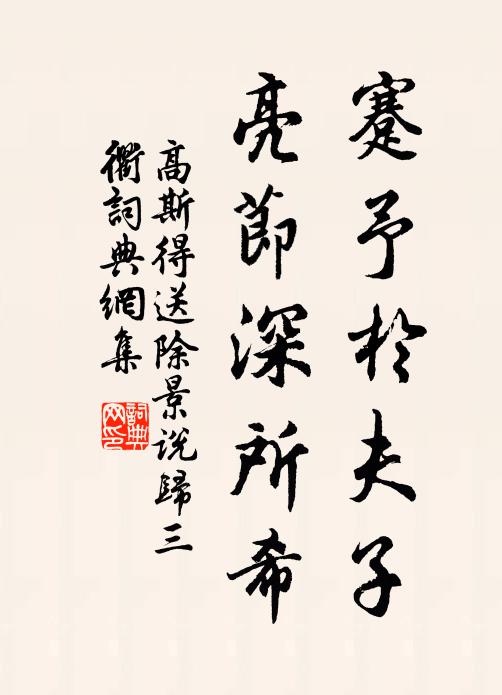 蹇予於夫子
亮節深所希
高斯得送除景説歸三
衢詞典網集
詞典
网印